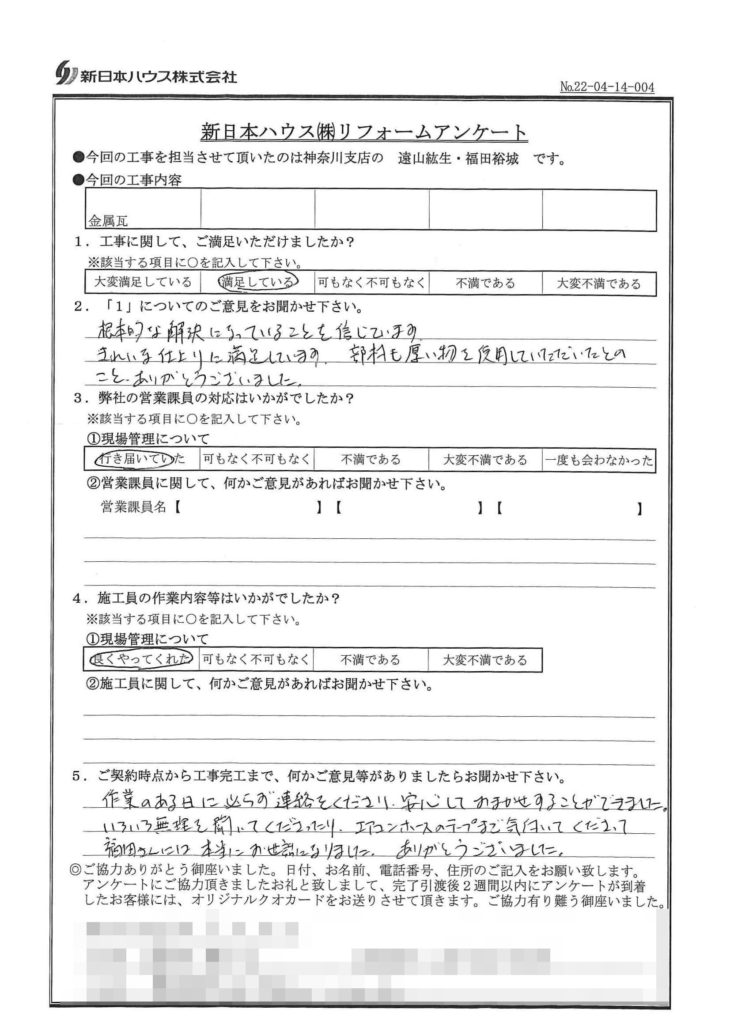 新日本ハウス株式会社
No.22-04-14-004
新日本ハウス㈱リフォームアンケート
●今回の工事を担当させて頂いたのは神奈川支店の 遠山紘生・福田裕城 です。
●今回の工事内容
金属瓦
1．工事に関して、ご満足いただけましたか？
※該当する項目に○を記入して下さい。
大変満足している 満足している 可もなく不可もなく 不満である 大変不満である
2．「1」についてのご意見をお聞かせ下さい。
根本的な解決になっていることを信じています
きれいな仕上りに満足しています。部材も厚い物を使用していただいたとの
こと、ありがとうございました。
3．弊社の営業課員の対応はいかがでしたか？
※該当する項目に○を記入して下さい。
①現場管理について
行き届いていた 可もなく不可もなく 不満である 大変不満である 一度も会わなかった
②営業課員に関して、何かご意見があればお聞かせ下さい。
営業課員名【 】【 】【 】
4．施工員の作業内容等はいかがでしたか？
※該当する項目に○を記入して下さい。
①現場管理について
良くやってくれた 可もなく不可もなく 不満である 大変不満である
②施工員に関して、何かご意見があればお聞かせ下さい。
5．ご契約時点から工事完工まで、何かご意見等がありましたらお聞かせ下さい。
作業のある日に必らず連絡をくださり、安心しておまかせすることができました。
いろいろ無理を聞いてくださったり、エアコンホースのテープまで気付いてくださって
福田さんには本当にお世話になりました。ありがとうございました。
◎ご協力ありがとう御座いました。日付、お名前、電話番号、住所のご記入をお願い致します。
アンケートにご協力頂きましたお礼と致しまして、完了引渡後2週間以内にアンケートが到着
したお客様には、オリジナルクオカードをお送りさせて頂きます。ご協力有り難う御座いました。